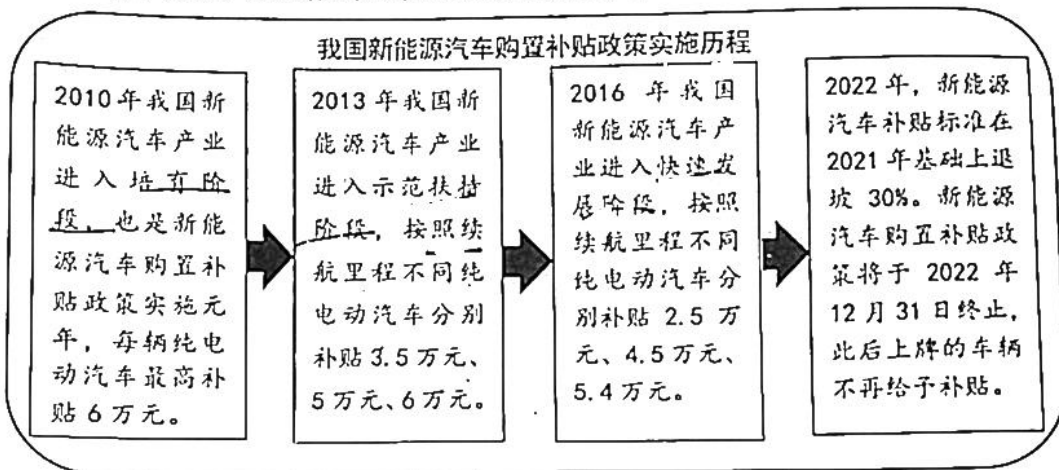 我国新能源汽车购置补贴政策实施历程
2010年我国新
能源汽车产业
进入培育阶
段，也是新能
源汽车购置补
贴政策实施元
年，每辆纯电
动汽车最高补
贴6万元。
2013年我国新
能源汽车产业
进入示范扶持
阶段，按照续
航里程不同纯
电动汽车分别
补贴3.5万元、
5万元、6万元。
2016年我国
新能源汽车产
业进入快速发
展阶段，按照
续航里程不同
纯电动汽车分
别补贴2.5万
元、4.5万元、
5.4万元。
2022年，新能源
汽车补贴标准在
2021年基础上退
坡30%。新能源
汽车购置补贴政
策将于2022年
12月31日终止，
此后上牌的车辆
不再给予补贴。